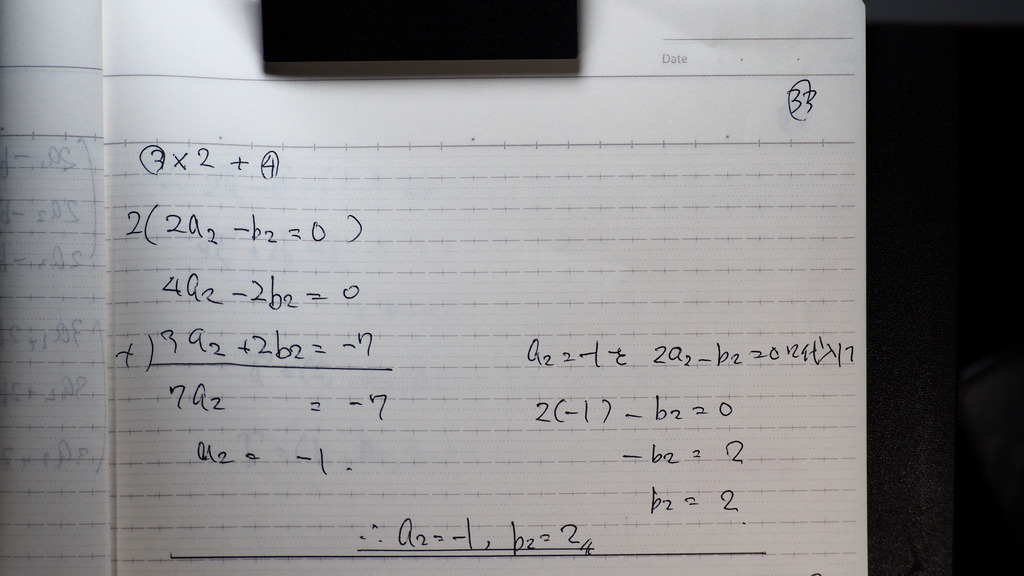 Date
㉝
③×2+④
2(2a₂-b₂=0)
4a₂-2b₂=0
+)3a₂+2b₂=-7
7a₂ = -7
a₂= -1.
a₂=-1を 2a₂-b₂=0に代入
2(-1)-b₂=0
-b₂=2
b₂=2
∴a₂=-1, b₂=2